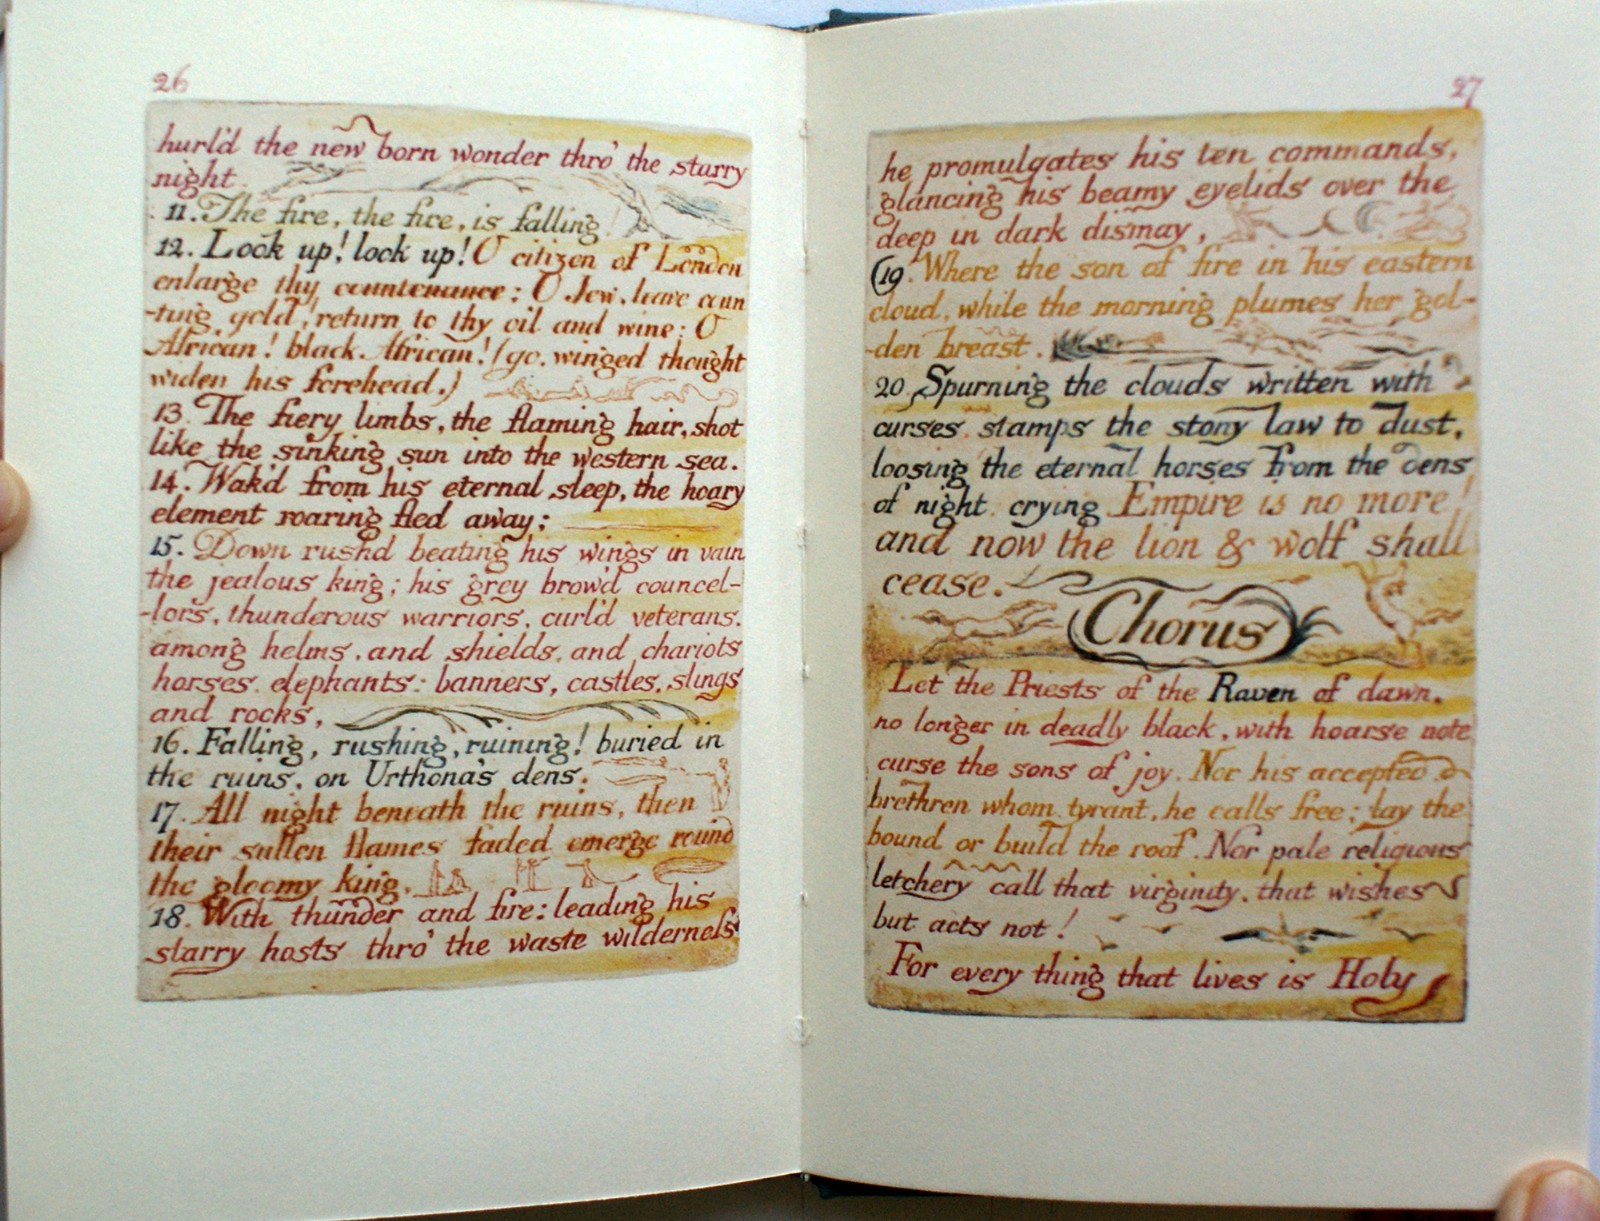 26
hurl'd the new born wonder thro' the starry
night.
11. The fire, the fire, is falling!
12. Look up! look up! O citizen of London
enlarge thy countenance; O Jew, leave coun
-ting gold! return to thy oil and wine; O
African! black African! (go. winged thought
widen his forehead.)
13. The fiery limbs, the flaming hair, shot
like the sinking sun into the western sea.
14. Wak'd from his eternal sleep, the hoary
element roaring fled away;
15. Down rush'd beating his wings in vain
the jealous king; his grey brow'd councel-
-lors, thunderous warriors, curl'd veterans,
among helms, and shields, and chariots
horses, elephants: banners, castles, slings
and rocks,
16. Falling, rushing, ruining! buried in
the ruins, on Urthona's dens;
17. All night beneath the ruins, then
their sullen flames faded emerge round
the gloomy king,
18. With thunder and fire: leading his
starry hosts thro' the waste wilderness
27
he promulgates his ten commands,
glancing his beamy eyelids over the
deep in dark dismay,
19. Where the son of fire in his eastern
cloud, while the morning plumes her gol-
-den breast.
20. Spurning the clouds written with
curses, stamps the stony law to dust,
loosing the eternal horses from the dens
of night, crying Empire is no more!
and now the lion & wolf shall
cease.
Chorus
Let the Priests of the Raven of dawn,
no longer in deadly black, with hoarse note
curse the sons of joy. Nor his accepted
brethren whom, tyrant, he calls free; lay the
bound or build the roof. Nor pale religious
letchery call that virginity, that wishes
but acts not!
For every thing that lives is Holy